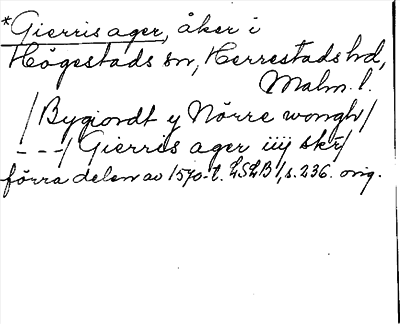 *Gierris ager, åker i
Högestads sn, Herrestads hd,
Malm. l.
/Bygiordt y Nörre wongh/
---/Gierris ager iiij skr/
förra delen av 1570-t. LSLB 1, s. 236. orig.